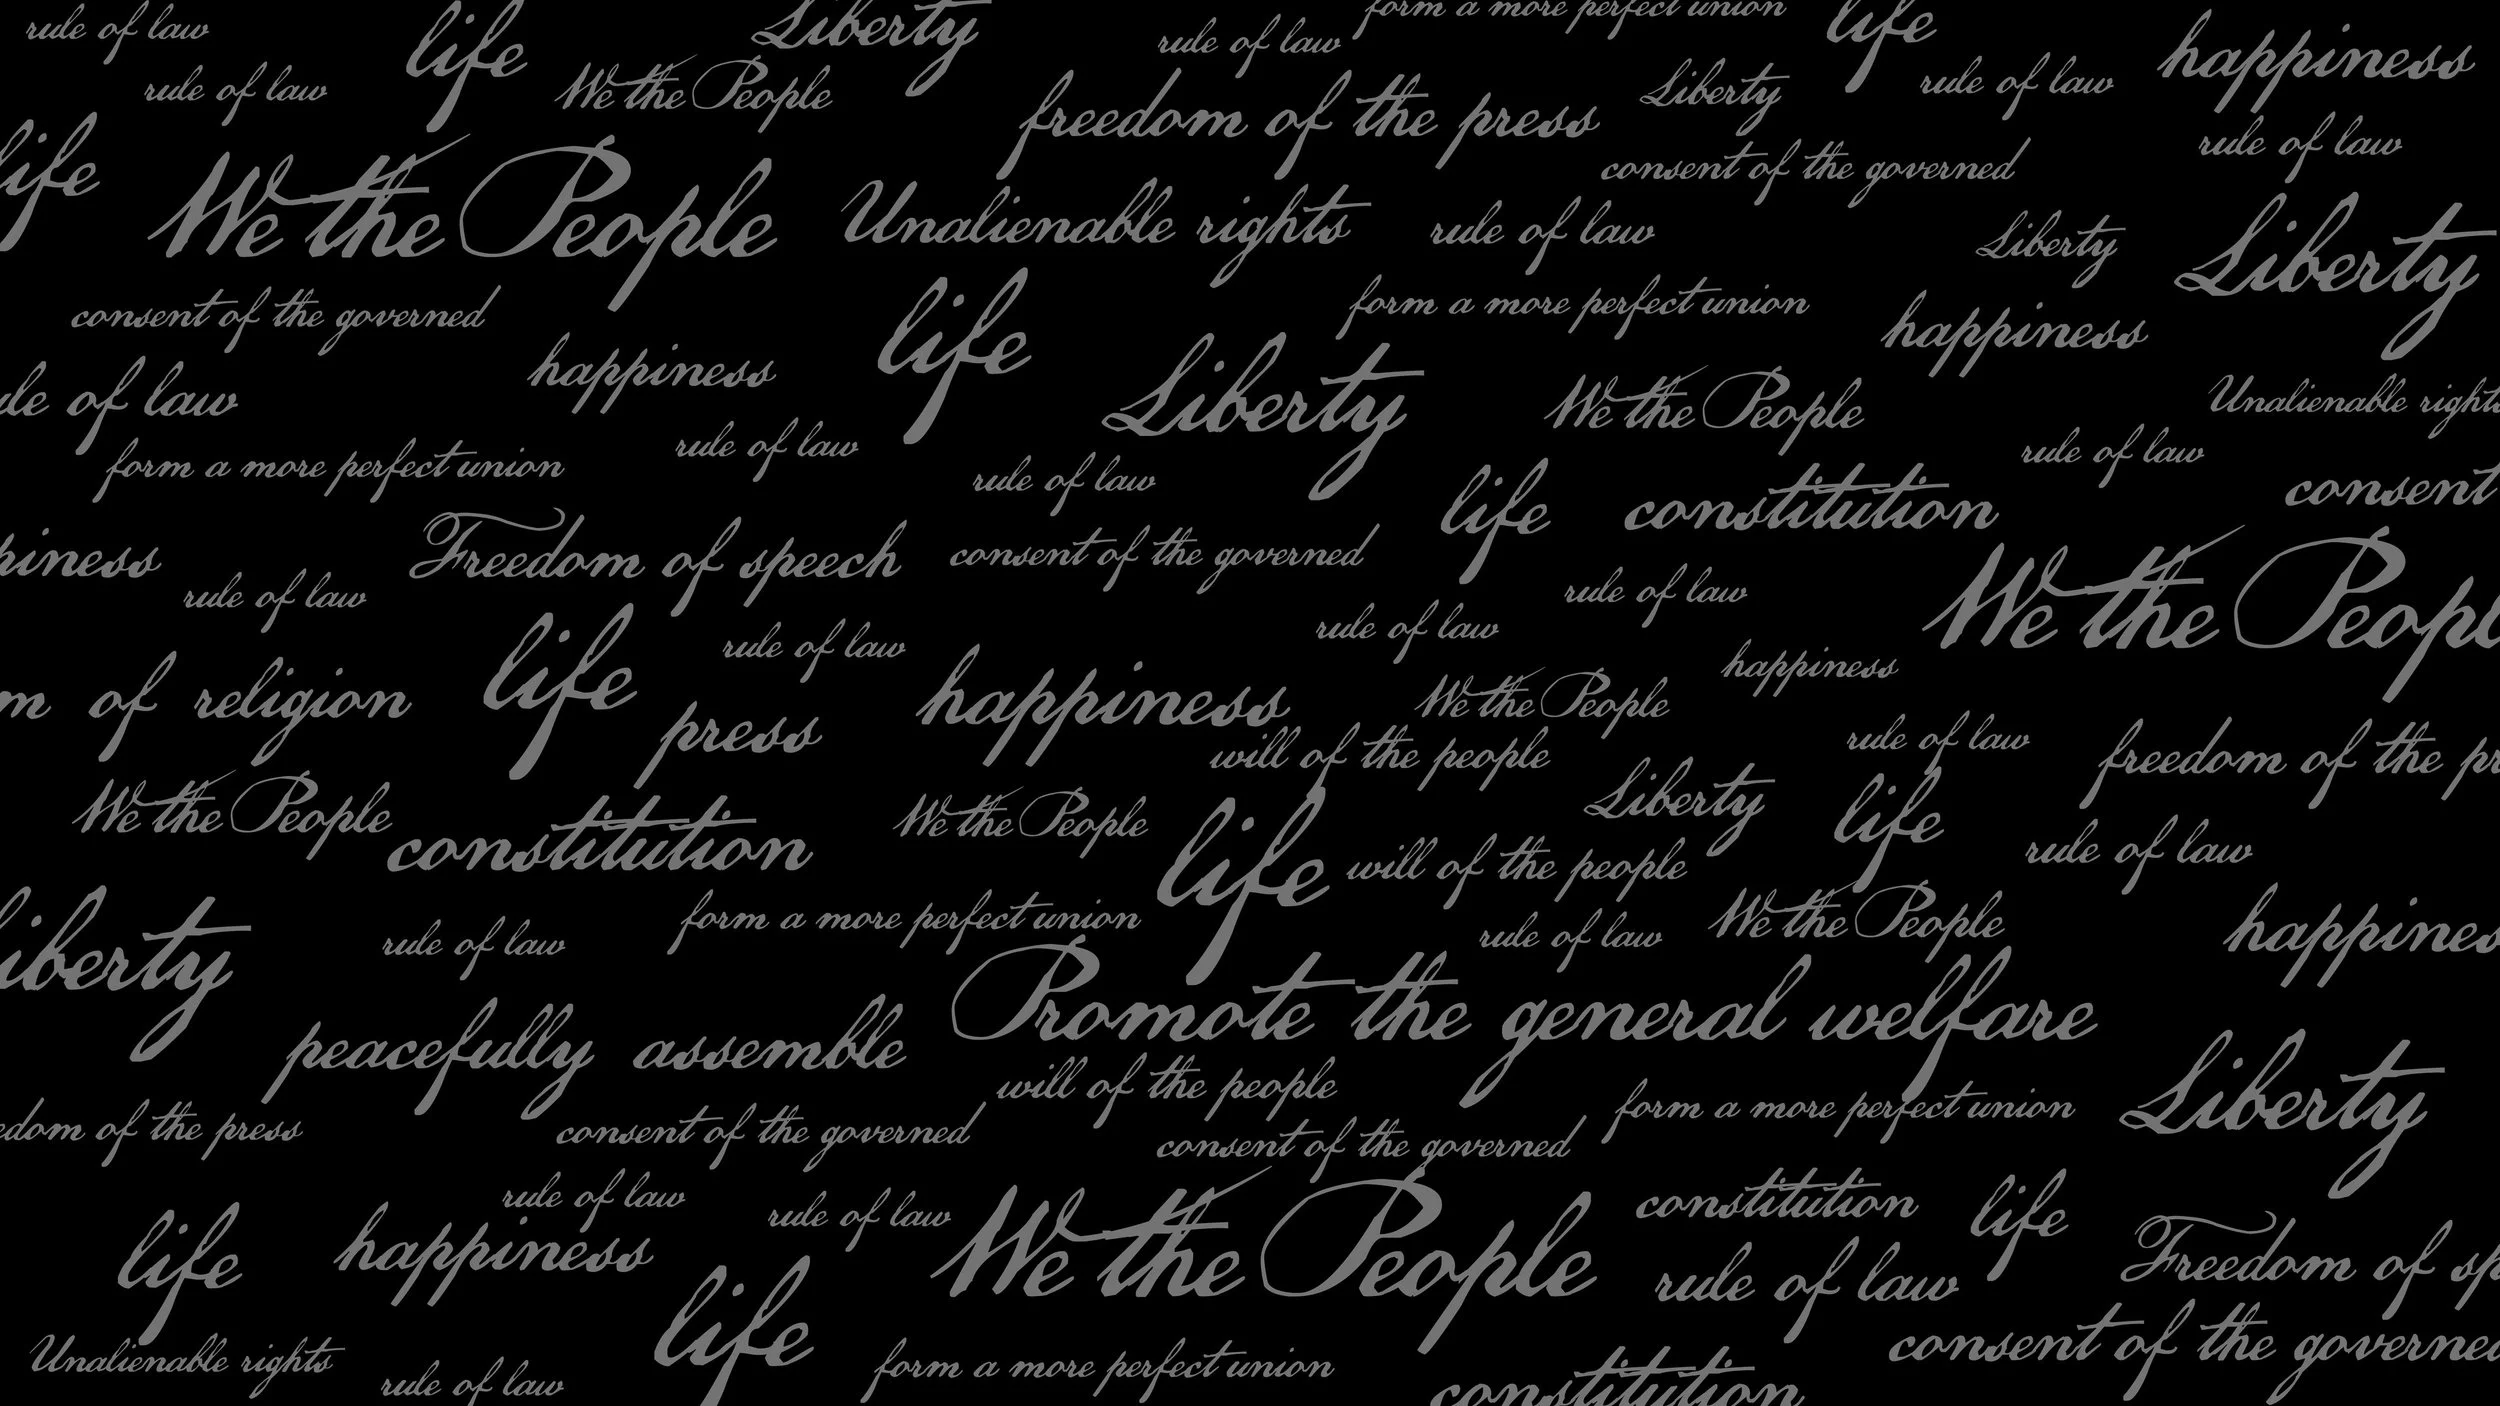 form a more perfect union
rule of law
life
Liberty
rule of law
life
happiness
rule of law
We the People
freedom of the press
Liberty
rule of law
rule of law
life
We the People
Unalienable rights
consent of the governed
rule of law
Liberty
Liberty
consent of the governed
life
form a more perfect union
happiness
happiness
Liberty
We the People
Unalienable rights
ule of law
rule of law
rule of law
form a more perfect union
rule of law
life
constitution
consent
Freedom of speech
consent of the governed
piness
rule of law
rule of law
We the Peopl
life
rule of law
rule of law
happiness
m of religion
press
happiness
We the People
rule of law
will of the people
freedom of the pr
We the People
constitution
We the People
life
Liberty
life
will of the people
rule of law
iberty
rule of law
form a more perfect union
rule of law
We the People
happines
peacefully assemble
Promote the general welfare
Liberty
will of the people
form a more perfect union
edom of the press
consent of the governed
consent of the governed
rule of law
rule of law
constitution
life
life
happiness
We the People
rule of law
Freedom of sp
life
consent of the governed
Unalienable rights
rule of law
form a more perfect union
constitution